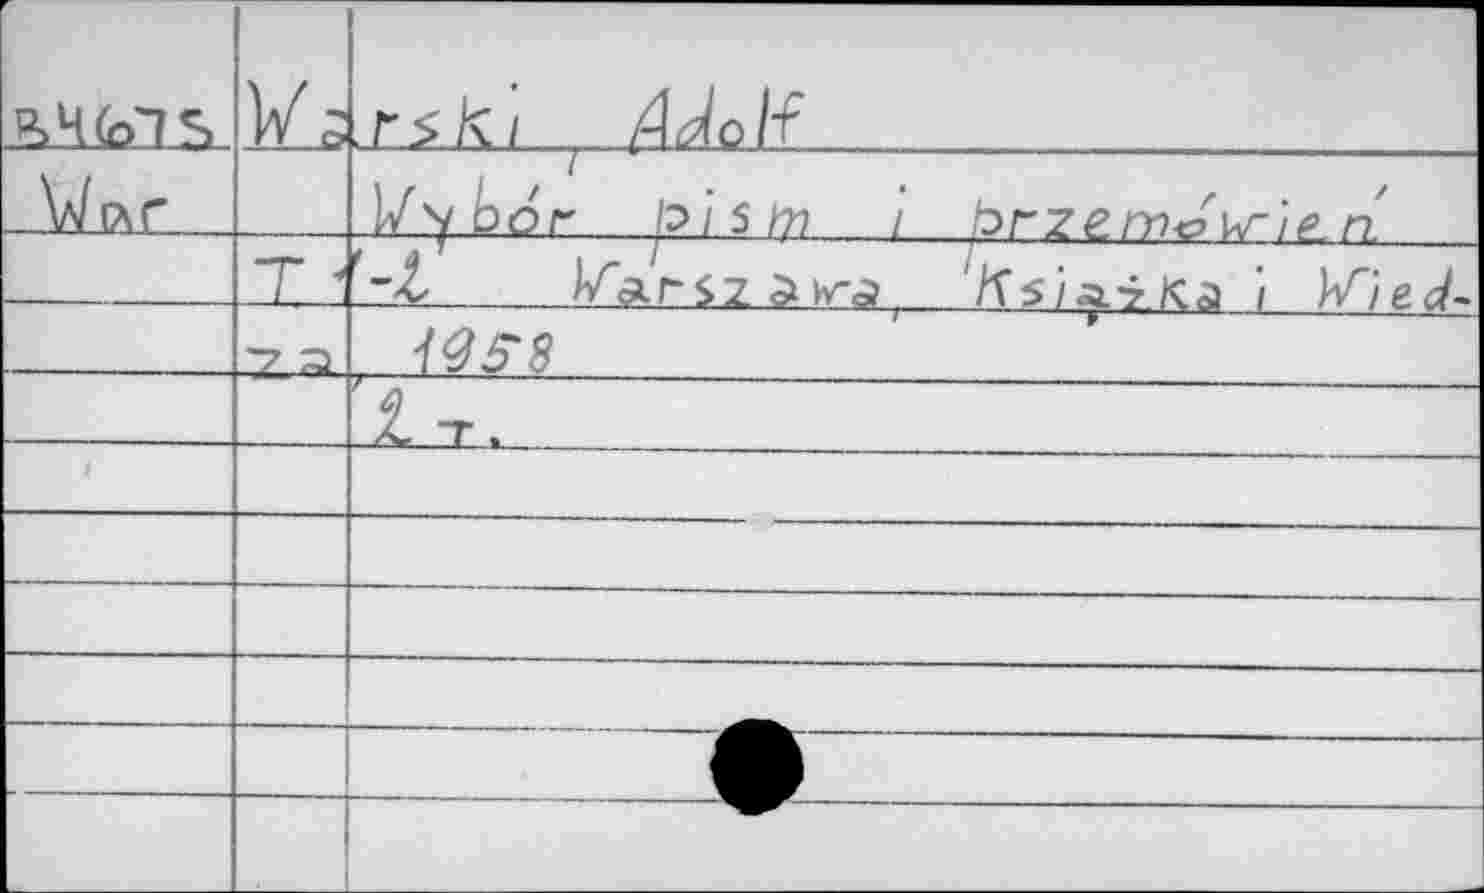 Warski, Adolf
War Wybór pism i przemówień
T 1-2 Warszawa, Książka i Wied-
za, 1958
2 т.